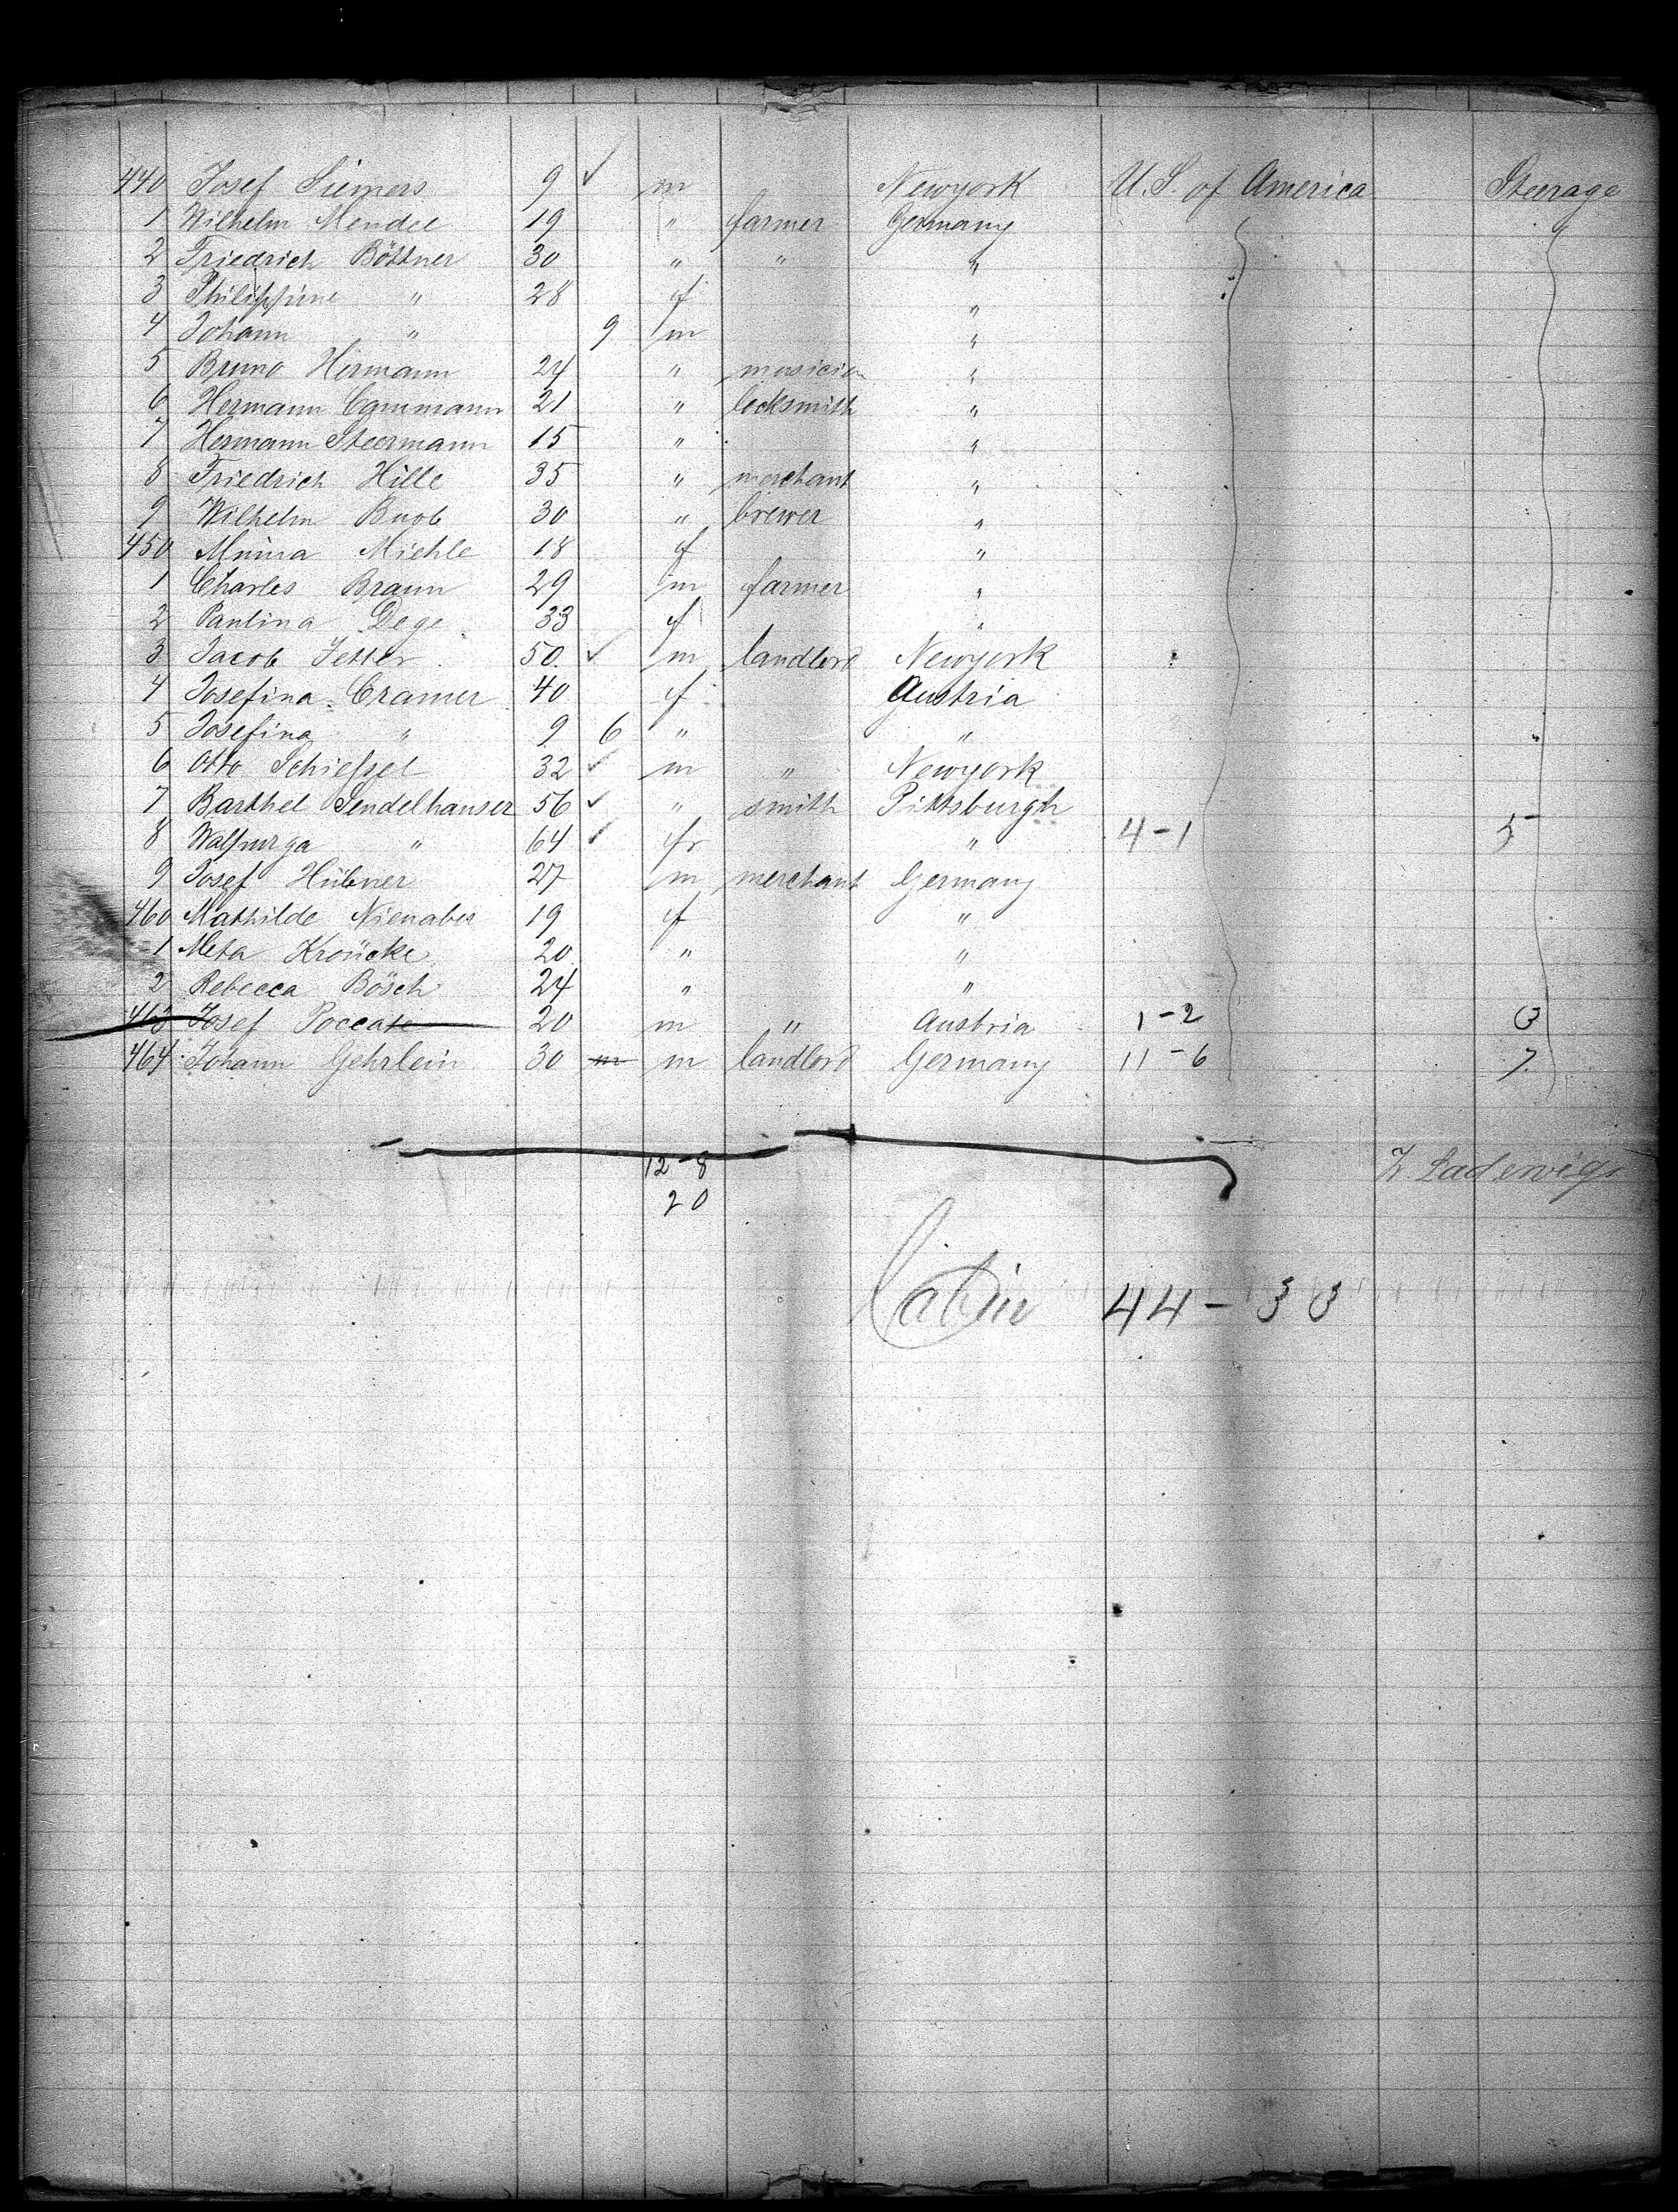 440 Josef Siemers 9 ✓ m Newyork U.S. of America Steerage
1 Wilhelm Mendel 19 " farmer Germany
2 Friedrich Böttner 30 " " "
3 Philippine " 28 f "
4 Johann " 9 m "
5 Bruno Hermann 24 " musician "
6 Hermann 21 " locksmith "
7 Hermann Steermann 15 " "
8 Friedrich Hille 35 " merchant "
9 Wilhelm Buob 30 " brewer "
450 Minna Miehle 18 f "
1 Charles Braun 29 m farmer "
2 Paulina Dege 33 f "
3 Jacob Jetter 50 ✓ m landlord Newyork
4 Josefina Cramer 40 f Austria
5 Josefina " 9 6 " "
6 Otto Schiessel 32 ✓ m " Newyork
7 Barthel Sendelhauser 56 ✓ " smith Pittsburgh
8 Walpurga " 64 ✓ f " 4-1 5
9 Josef Hübner 27 m merchant Germany
460 Mathilde Nienaber 19 f "
1 Meta Kroücke 20 " "
2 Rebecca Bösch 24 " "
463 Josef Poccate 20 m " Austria 1-2 3
464 Johann Gehrlein 30 m m landlord Germany 11-6 7
12-8
20
Ladewigs
Cabin 44-33